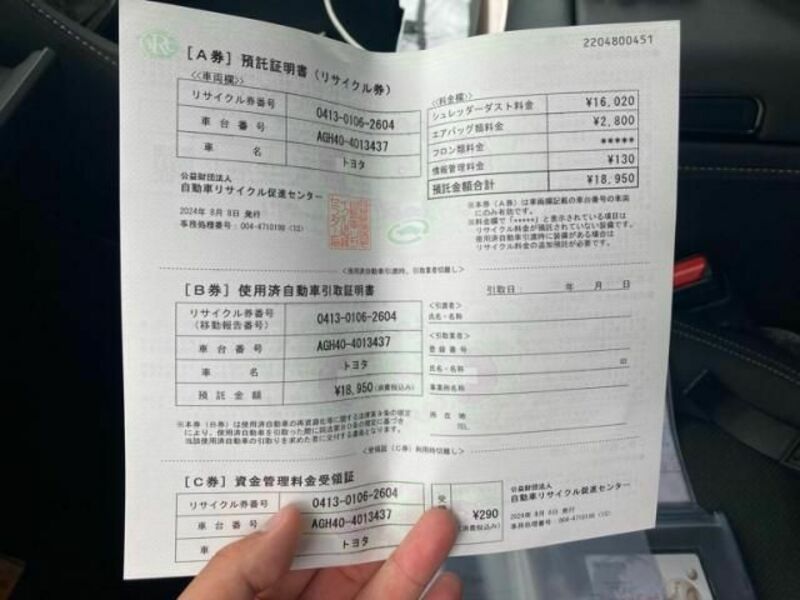 2204800451
[A券] 預託証明書(リサイクル券)
<<車両欄>>
リサイクル券番号 0413-0106-2604
車台番号 AGH40-4013437
車名 トヨタ
公益財団法人
自動車リサイクル促進センター
2024年 8月 8日 発行
<<料金欄>>
シュレッダーダスト料金 ¥16,020
エアバッグ類料金 ¥2,800
フロン類料金 *****
情報管理料金 ¥130
預託金額合計 ¥18,950
※本券(A券)は車両欄記載の車台番号の車両
にのみ有効です。
※料金欄で「*****」と表示されている項目は
リサイクル料金が預託されていない装備です。
使用済自動車引渡時に装備がある場合は
リサイクル料金の追加預託が必要です。
<使用済自動車引渡時、引取業者切離し>
[B券] 使用済自動車引取証明書
引取日: 年 月 日
リサイクル券番号
(移動報告番号) 0413-0106-2604
車台番号 AGH40-4013437
車名 トヨタ
預託金額 ¥18,950(消費税込み)
<引渡者>
氏名・名称
<引取業者>
登録番号
氏名・名称 ㊞
事業所名称
所在地
TEL
※本券(B券)は使用済自動車の再資源化等に関する法律第80条の規定
<受領証(C券)利用時切離し>
[C券] 資金管理料金受領証
リサイクル券番号 0413-0106-2604
車台番号 AGH40-4013437
車 トヨタ
受
¥290
(消費税込み)
公益財団法人
自動車リサイクル促進センター
2024年 8月 8日 発行